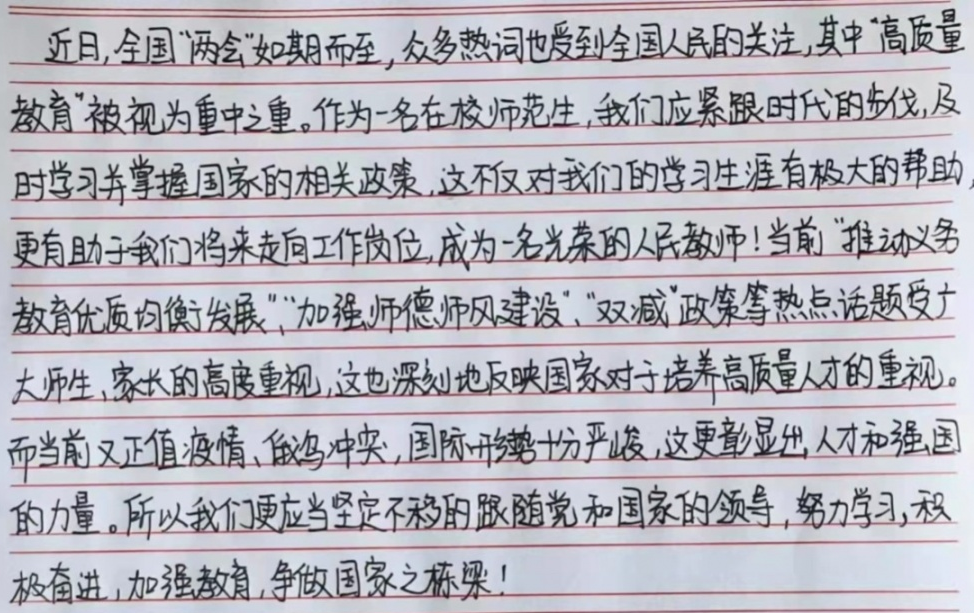 近日,全国"两会"如期而至,众多热词也受到全国人民的关注,其中"高质量
教育"被视为重中之重。作为一名在校师范生,我们应紧跟时代的步伐,及
时学习并掌握国家的相关政策,这不仅对我们的学习生涯有极大的帮助,
更有助于我们将来走向工作岗位,成为一名光荣的人民教师!当前"推动义务
教育优质均衡发展"、"加强师德师风建设"、"双减"政策等热点话题受广
大师生、家长的高度重视,这也深刻地反映国家对于培养高质量人才的重视。
而当前又正值疫情、俄乌冲突,国际形势十分严峻,这更彰显出人才和强国
的力量。所以我们更应当坚定不移的跟随党和国家的领导,努力学习,积
极奋进,加强教育,争做国家之栋梁!